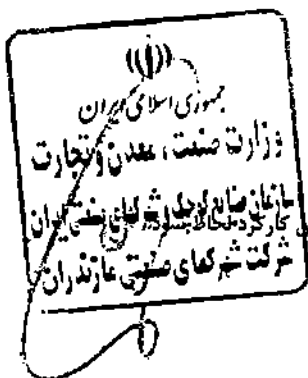 جمهوری اسلامی ایران
وزارت صنعت، معدن و تجارت
سازمان صنایع کوچک و شهرکهای صنعتی ایران
کارکرد لحاظ بشود
شرکت شهرکهای صنعتی مازندران